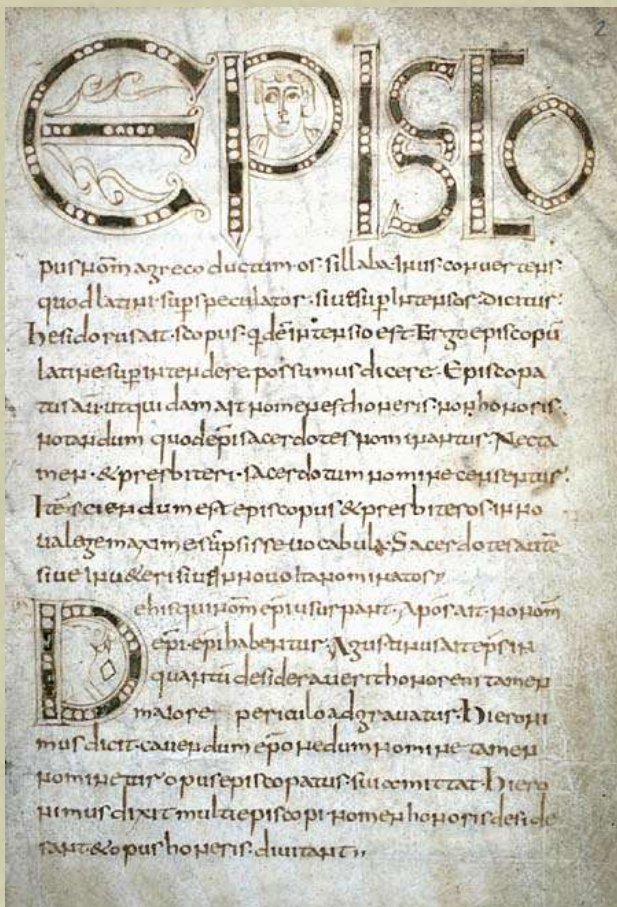 2
EPISCO
pus nom̄ a greco ductum · os · sillaba in us convertens ·
quod latini sup̄speculator · sive sup̄intensor · dicitur ·
hesidorus ait · scopus · q̄dē intensio est · Ergo episcopū
latine sup̄intendere possumus dicere · Episcopa
tus aū · ut quidam ait nomen est honeris · non honoris ·
notandum quod ep̄i sacerdotes nominantur · Nec ta
men · & presbiteri · sacerdotum nomine censentur ·
Itē · sciendum est episcopus & presbiteros · in no
va lege maxime sūpsisse vocabula · Sacerdotes autē
sive in v&eri sive in novo ita nominatos
De his qui nom̄ ep̄i usurpant · Apos̄ ait · non om̄
ep̄i · ep̄i habentur · Agustinus ait ep̄s in
quantū desideraverit honorem tamen
maiore periculo adgravatur · Hieroni
mus dicit · cavendum ep̄o nedum nomine tamen
nominetur opus episcopatus · sui omittat · Hiero
nimus dixit multi episcopi · nomen honoris deside
rant · & opus honeris · divitant